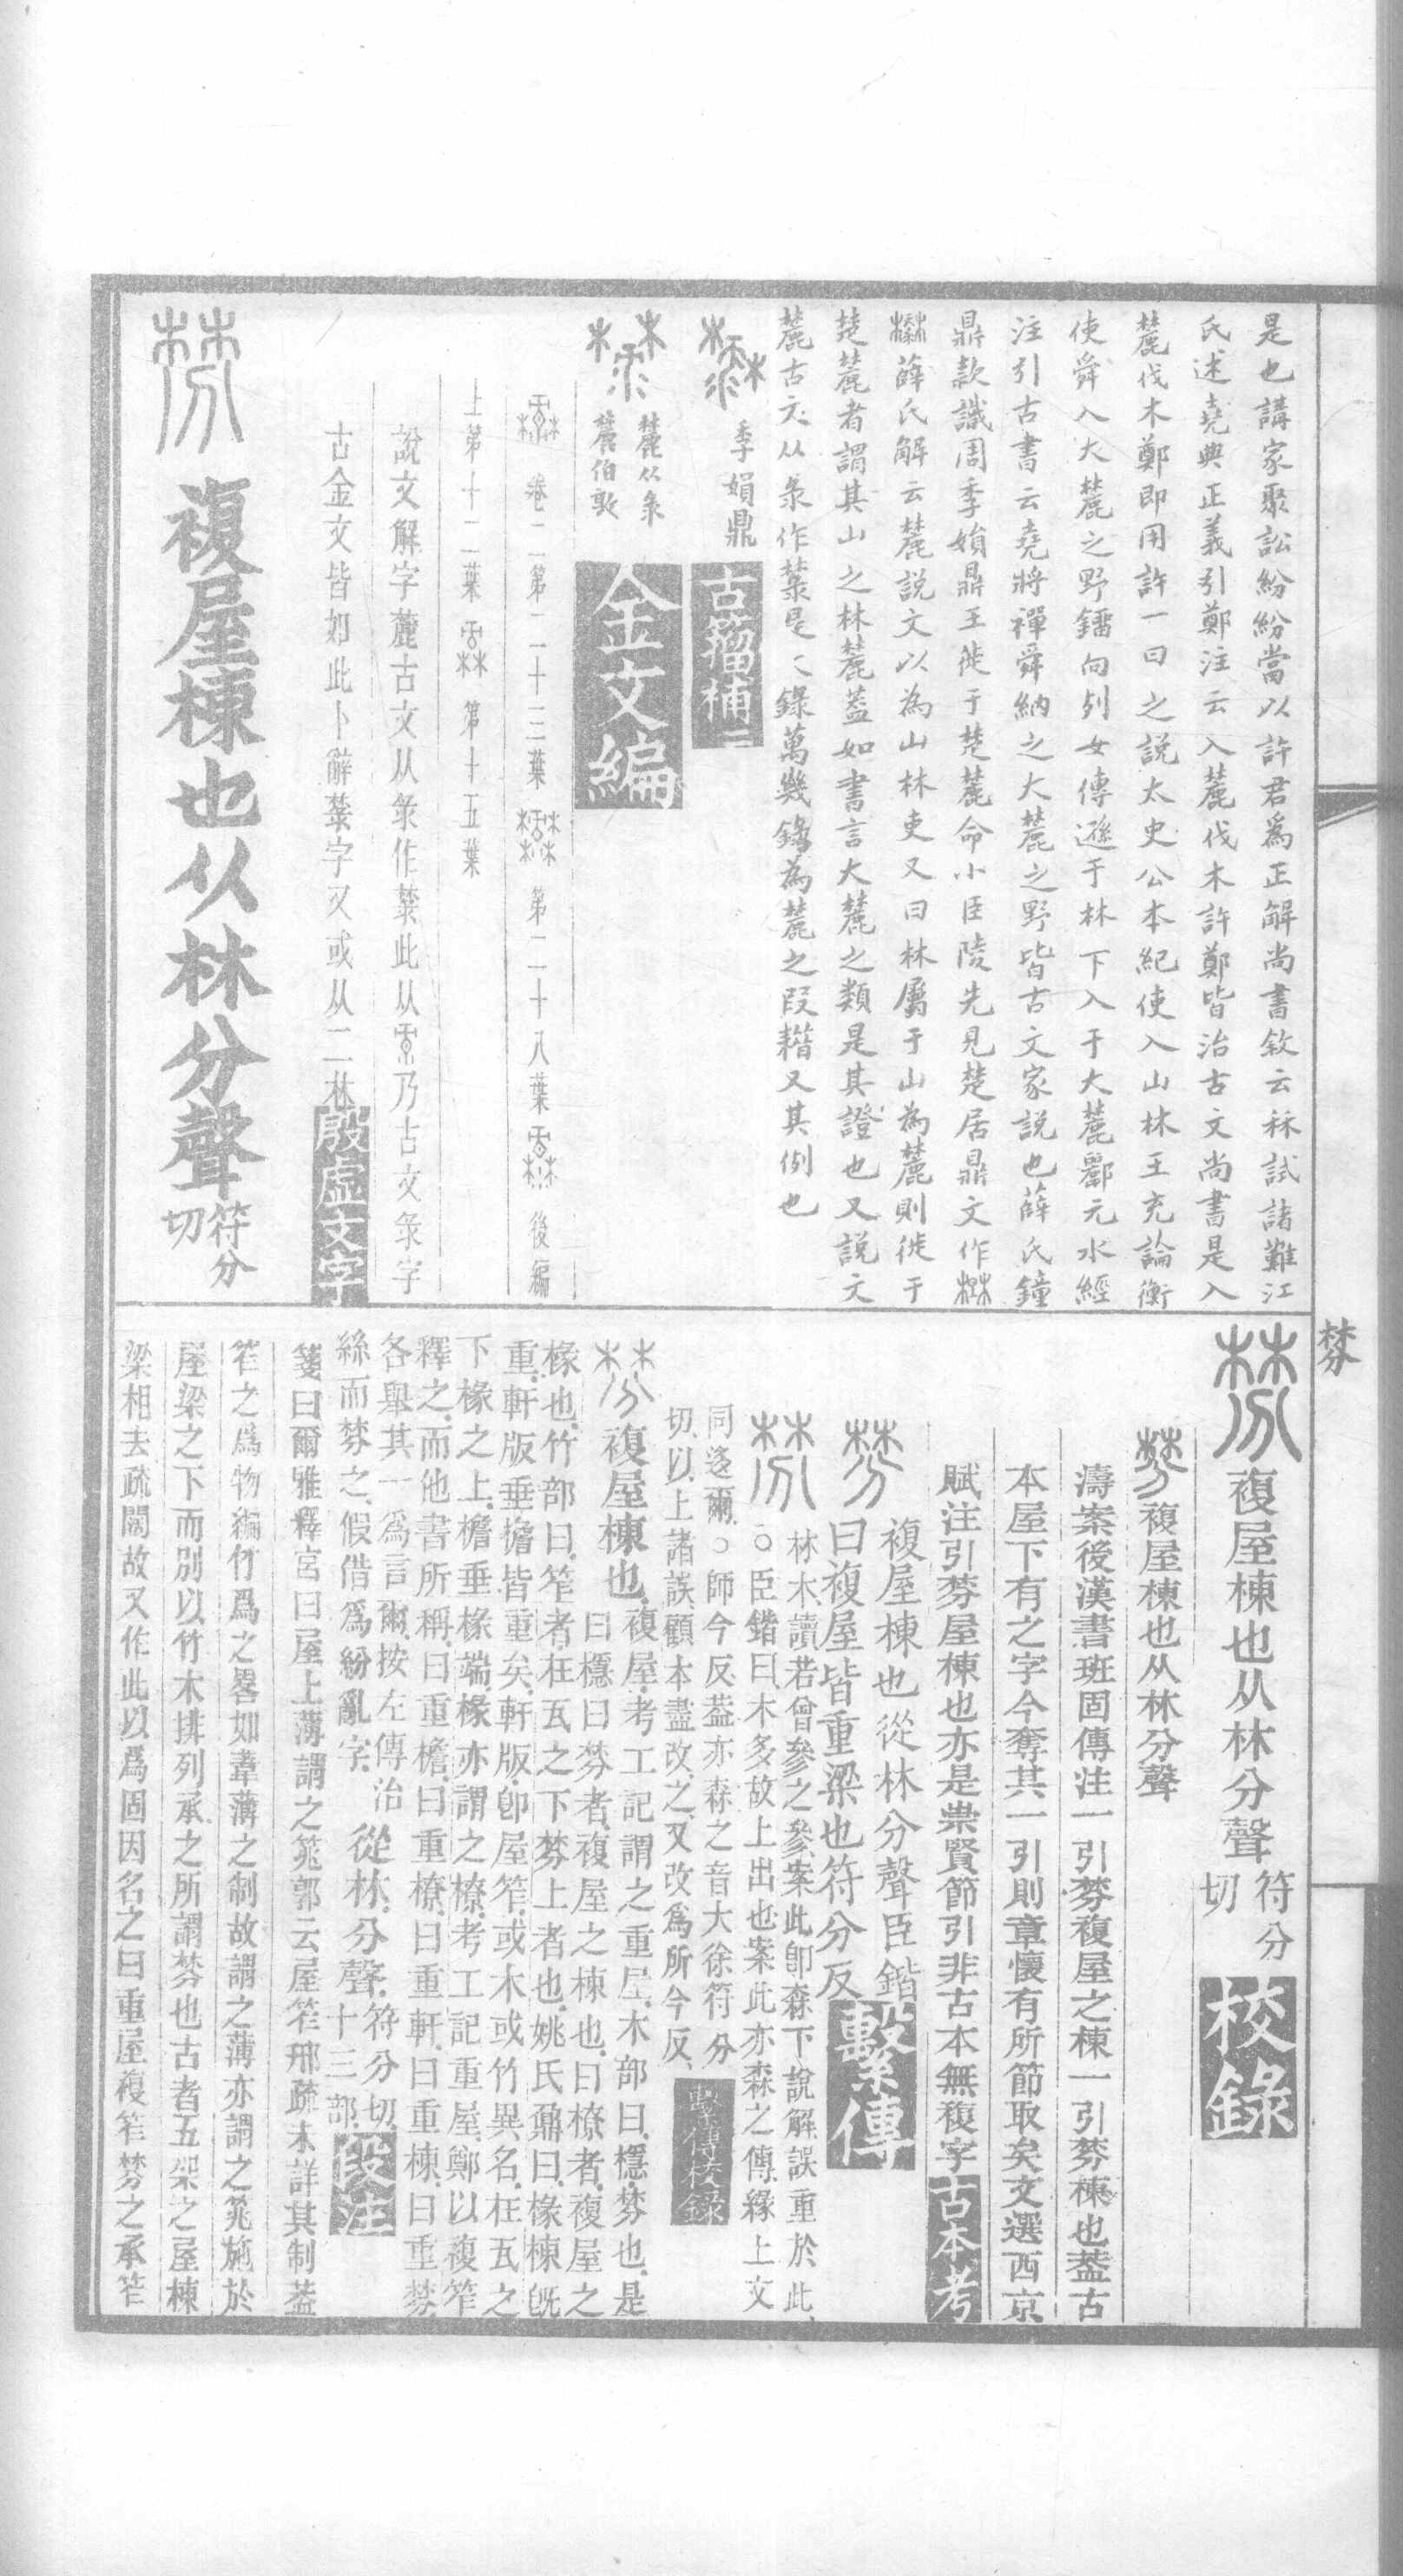 是也講家聚訟紛紛當以許君爲正解尚書敘云秝試諸難江
氏述堯典正義引鄭注云入麓伐木許鄭皆治古文尚書是入
麓伐木鄭即用許一曰之説太史公本紀使入山林王充論衡
使舜入大麓之野鐇向列女傳遜于林下入于大麓酈元水經
注引古書云堯將禪舜納之大麓之野皆古文家説也薛氏鐘
鼎款識周季媍鼎王徙于楚麓命小臣陵先見楚居鼎文作
薛氏解云麓説文以為山林吏又曰林屬于山為麓則徙于
楚麓者謂其山之林麓蓋如書言大麓之類是其證也又説文
麓古文从彔作菉是く錄萬幾錄為麓之叚耤又其例也
季媍鼎 古籀補
麓从彔
麓伯敦 金文編
卷二第二十三葉 第二十八葉 後編
上第十二葉 第十五葉
說文解字麓古文从彔作菉此从乃古文彔字
古金文皆如此卜辭菉字又或从二林 殷虛文字
棼 複屋棟也从林分聲 符分切
棼
棼 複屋棟也从林分聲 符分切 校錄
棼 複屋棟也从林分聲
濤案後漢書班固傳注一引棼複屋之棟一引棼棟也葢古
本屋下有之字今奪其一引則章懷有所節取矣文選西京
賦注引棼屋棟也亦是崇賢節引非古本無複字 古本考
棼 複屋棟也從林分聲臣鍇
曰複屋皆重梁也符分反 繫傳
棼 林木讀若曾參之參案此卽森下說解誤重於此
○臣鍇曰木多故上出也案此亦森之傳緣上文
同迻爾○師今反葢亦森之音大徐符分
切以上諸誤顧本盡改之又改爲所今反 繫傳校錄
棼 複屋棟也 複屋考工記謂之重屋木部曰檼棼也是
曰檼曰棼者複屋之棟也曰橑者複屋之
椽也竹部曰笮者在瓦之下棼上者也姚氏鼐曰椽棟旣
重軒版垂擔皆重矣軒版卽屋笮或木或竹異名在瓦之
下椽之上檐垂椽端椽亦謂之橑考工記重屋鄭以複笮
釋之而他書所稱曰重檐曰重橑曰重軒曰重棟曰重棼
各舉其一爲言爾按左傳治
絲而棼之假借爲紛亂字 從林分聲 符分切十三部 段注
箋曰爾雅釋宮曰屋上薄謂之筄郭云屋笮邢疏未詳其制葢
笮之爲物編竹爲之畧如葦薄之制故謂之薄亦謂之筄施於
屋梁之下而別以竹木排列承之所謂棼也古者五架之屋棟
梁相去疏闊故又作此以爲固因名之曰重屋複笮棼之承笮